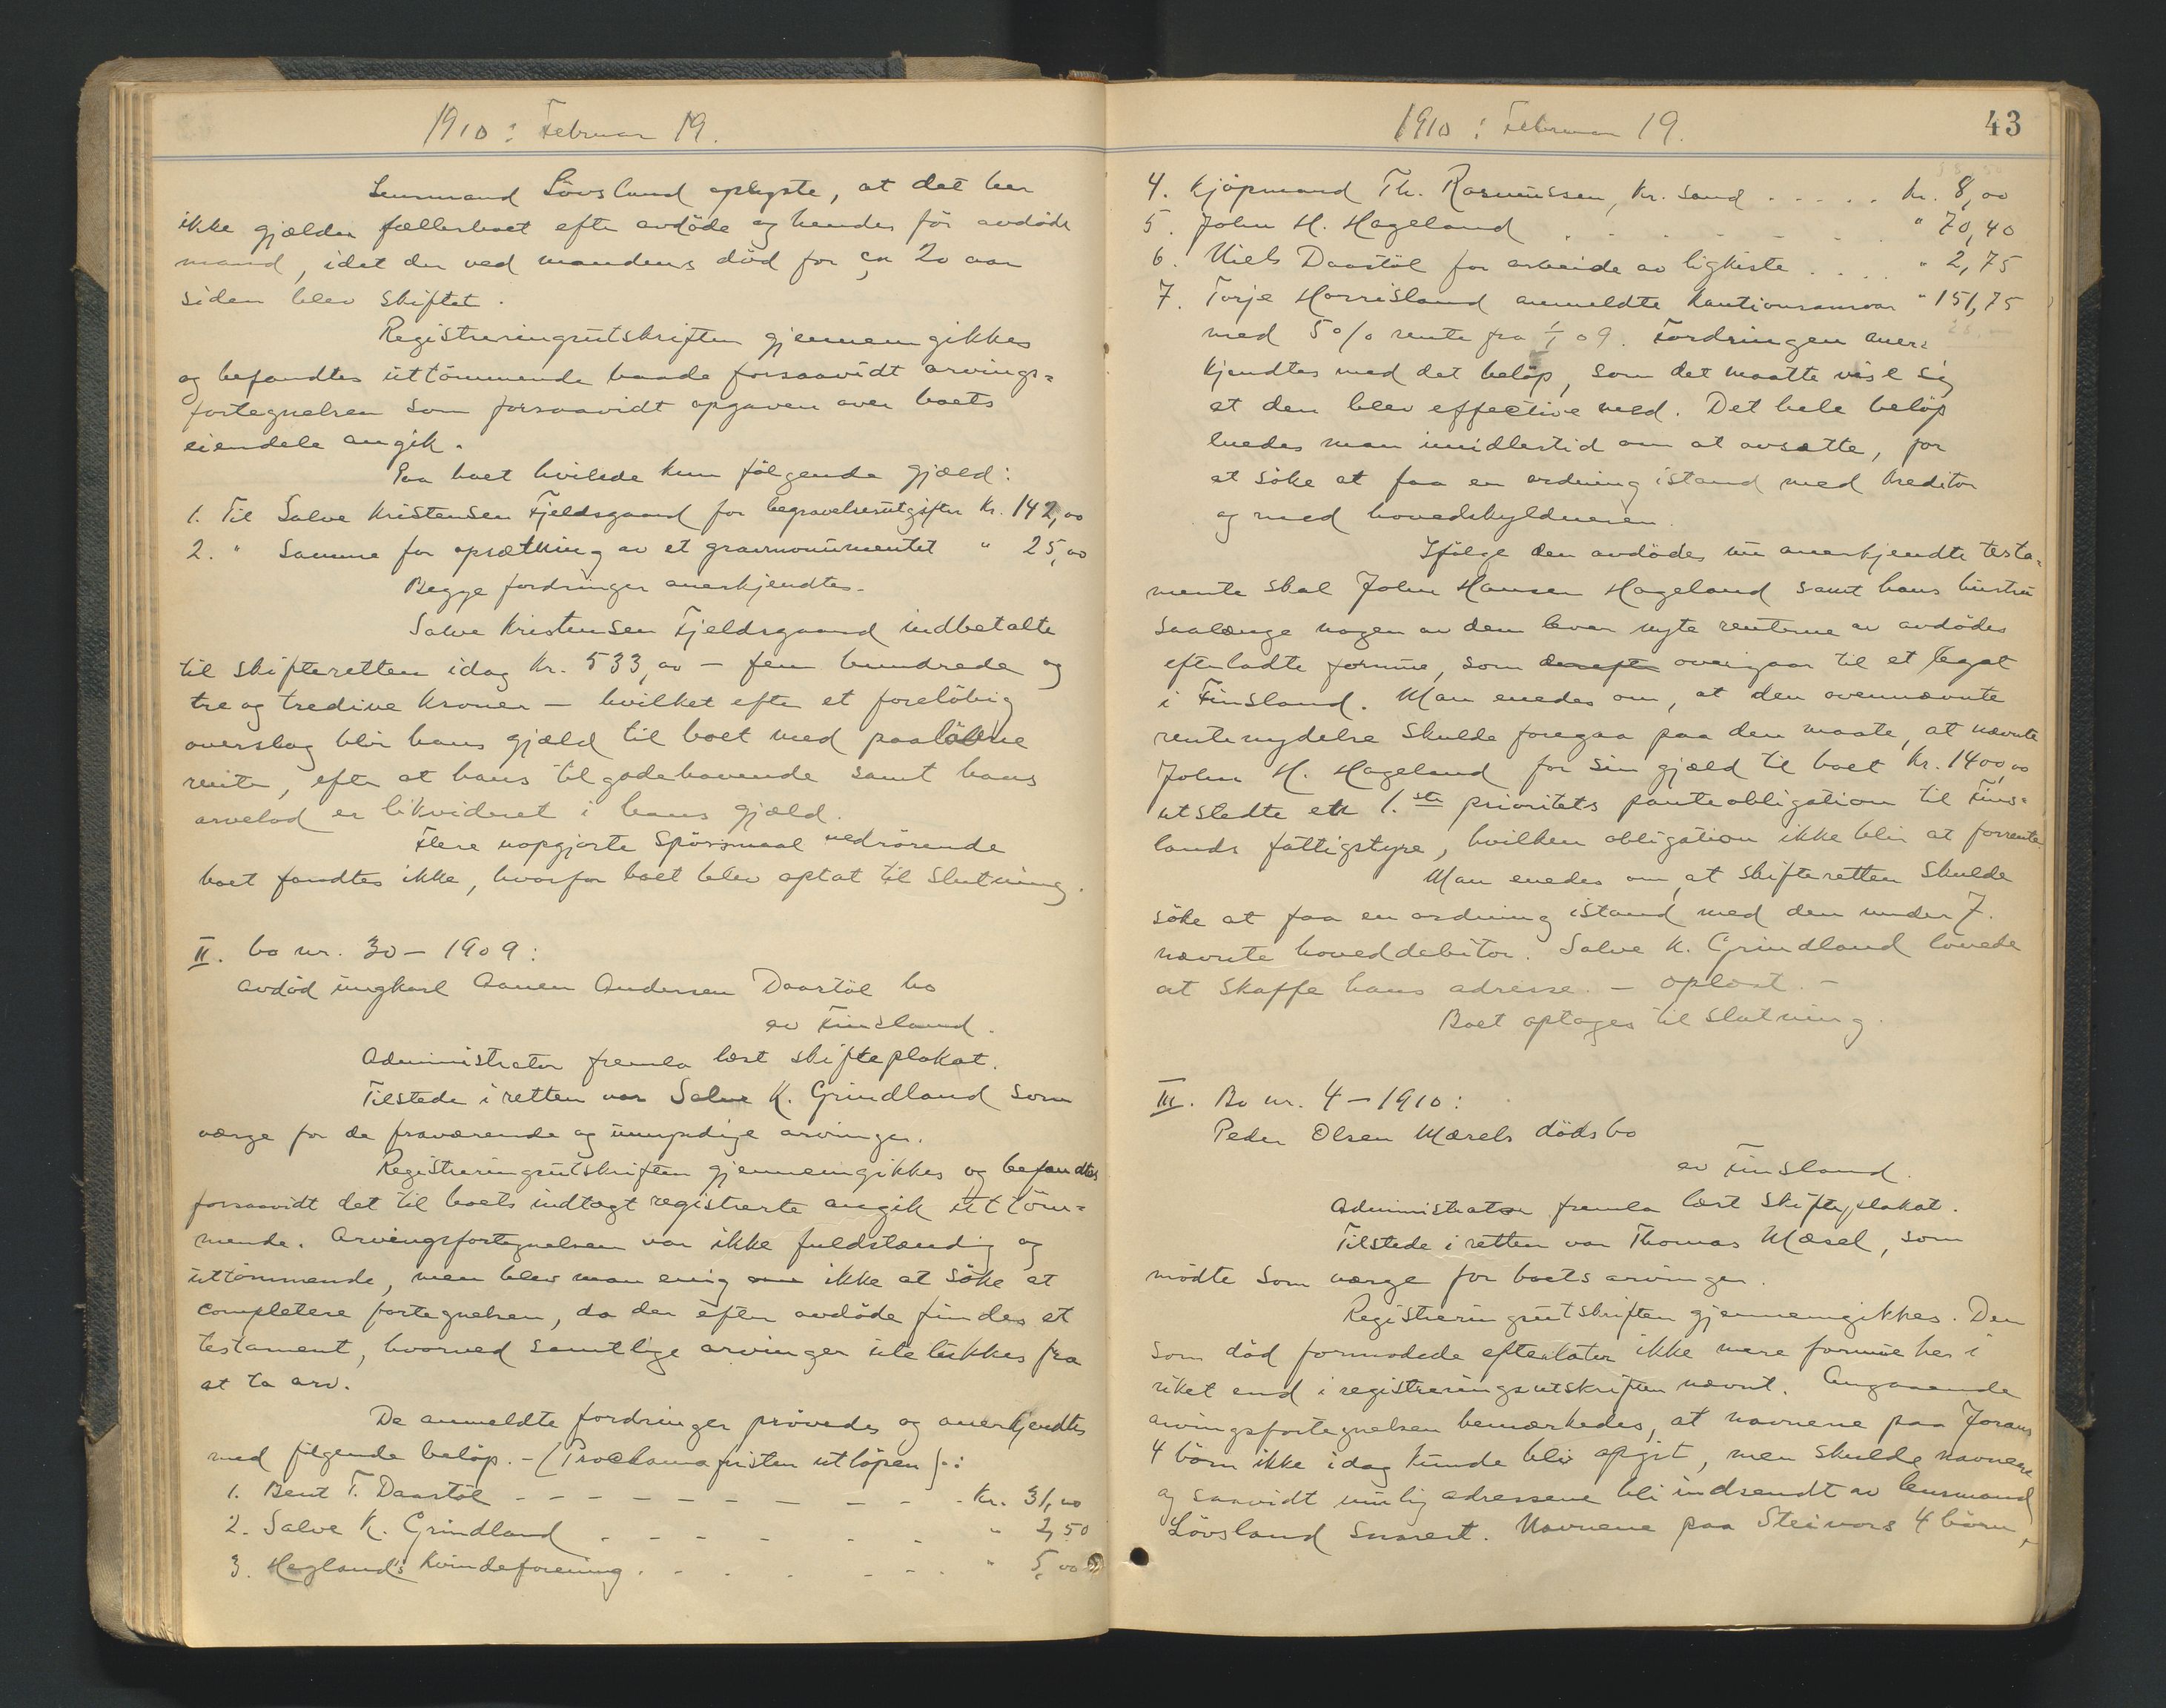 1910 : Februar 19.
Lensmand Lövsland oplyste, at det her
ikke gjælder fællesboet efter avdöde og hendes för avdöde
mand, idet der ved mandens död for ca 20 aar
siden blev skiftet.
Registreringsutskriften gjennemgikkes
og befandtes uttömmende baade forsaavidt arvings=
fortegnelsen som forsaavidt opgaven over boets
eiendele angik.
Paa boet hvilede kun fölgende gjæld:
1. Til Salve Kristensen Fjeldsgaard for begravelsesutgifter Kr. 142,00
2. " Samme for opsætning av et gravmonumentet " 25,00
Begge fordringer anerkjendtes.
Salve Kristensen Fjeldsgaard indbetalte
til skifteretten idag Kr. 533,00 — fem hundrede og
tre og tredive kroner — hvilket efter et foreløbig
overslag blir hans gjæld til boet med paalöbne
renter, efter at hans tilgodehavende samt hans
arvelod er likvideret i hans gjæld.
Flere uopgjorte spörsmaal vedrörende
boet fandtes ikke, hvorfor boet blev optat til slutning.
II. bo nr. 30 — 1909:
avdöd ungkarl Aanen Andersen Daastöl bo
av Finsland.
Administrator fremla læst skifteplakat.
Tilstede i retten var Salve K. Grindland som
værge for de fraværende og umyndige arvinger.
Registreringsutskriften gjennemgikkes og befandtes
forsaavidt det til boets indtægt registrerte angik uttöm=
mende. Arvingsfortegnelsen var ikke fuldstændig og
uttömmende, men blev man enig om ikke at söke at
completere fortegnelsen, da der efter avdöde findes et
testament, hvorved samtlige arvinger utelukkes fra
at ta arv.
De anmeldte fordringer prövedes og anerkjendtes
med fölgende belöp. – (Proclamafristen utlöpen).:
1. Bent T. Daastöl - - - - - - Kr. 31,00
2. Salve K. Grindland . . - - - . . " 2,50
3. Heglands Kvindeforening . . . . - - . " 5,00
1910 : Februar 19.
43
4. Kjöpmand Th. Rasmussen, Kr. sand . . . . . Kr. 8,00
5. John H. Hageland . . . . . . " 70,40
6. Niels Daastöl for arbeide av ligkiste . . . . " 2,75
7. Torje Horrisland anmeldte kautionsansvar " 151,75
med 5 % rente fra 1/1 09. Fordringen aner=
kjendtes med det belöp, som det maatte vise sig
at den blev effective med. Det hele belöp
enedes man imidlertid om at avsætte, for
at söke at faa en ordning istand med kreditor
og med hovedskyldneren.
Ifölge den avdödes nu anerkjendte testa=
mente skal John Hansen Hageland samt hans hustru
saalænge nogen av dem lever nyte renterne av avdödes
efterladte formue, som derefter overgaar til et legat
i Finsland. Man enedes om, at den ovennævnte
rentenydelse skulde foregaa paa den maate, at nævnte
John H. Hageland for sin gjæld til boet Kr. 1400,00
utstedte en 1.ste prioritets panteobligation til Fins=
lands fattigstyre, hvilken obligation ikke blir at forrente
Man enedes om, at skifteretten skulde
söke at faa en ordning istand med den under 7.
nævnte hoveddebitor. Salve K. Grindland lovede
at skaffe hans adresse. — oplæst. —
Boet optages til slutning.
III. Bo nr. 4 — 1910:
Peder Olsen Mæsels dödsbo
av Finsland.
Administrator fremla læst skifteplakat.
Tilstede i retten var Thomas Mæsel, som
mödte som værge for boets arvinger.
Registreringsutskriften gjennemgikkes. Den
som död formodede efterlater ikke mere formue her i
riket end i registreringsutskriften nævnt. Angaaende
arvingsfortegnelsen bemærkedes, at navnene paa Jorans
4 börn ikke idag kunde bli opgit, men skulde navnene
og saavidt mulig adressene bli indsendt av lensmand
Lövsland snarest. Navnene paa Steinors 4 börn,